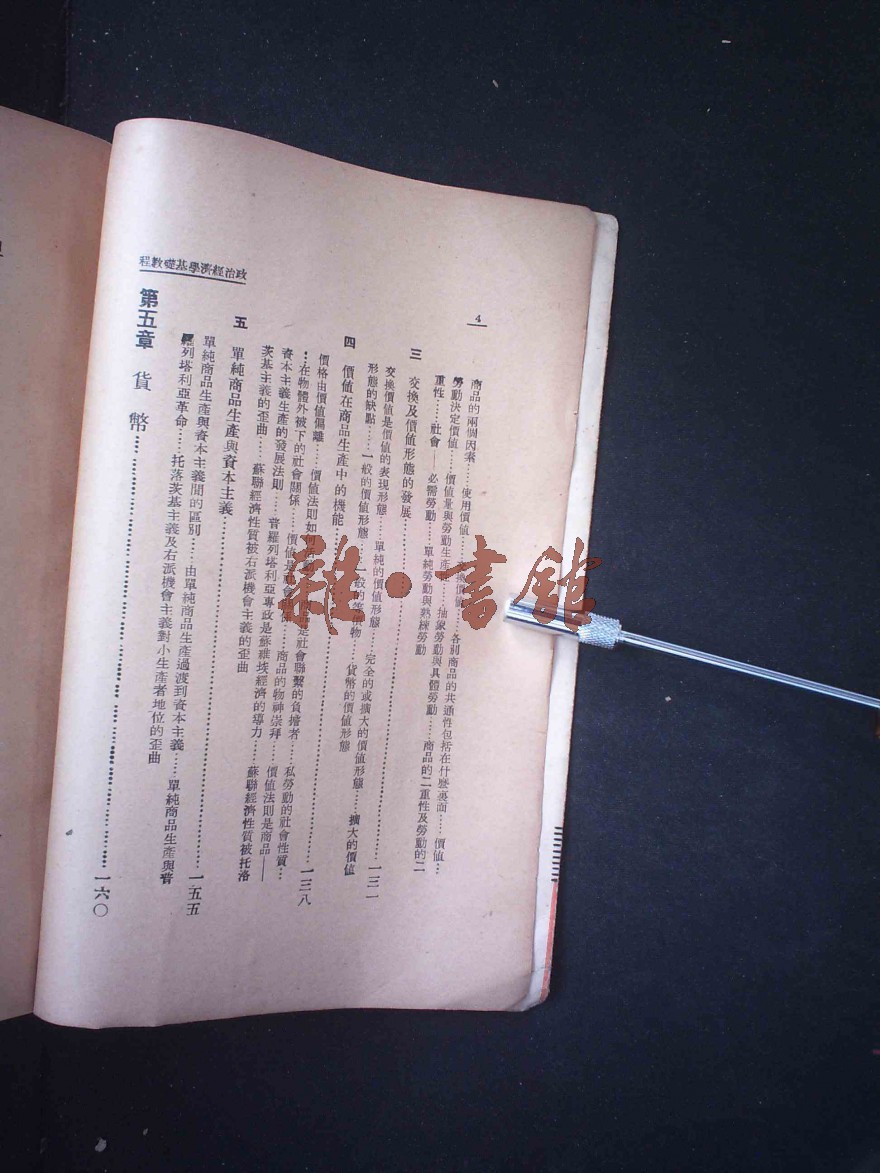 政治經濟學基礎教程
4
商品的兩個因素……使用價值……交換價值……各別商品的共通性包括在什麼裏面……價值…
勞動決定價值……價值量與勞動生產……抽象勞動與具體勞動……商品的二重性及勞動的二
重性……社會——必需勞動……單純勞動與熟練勞動
三 交換及價值形態的發展……一三一
交換價值是價值的表現形態……單純的價值形態……完全的或擴大的價值形態……擴大的價值
形態的缺點……一般的價值形態……一般的等價物……貨幣的價值形態
四 價値在商品生產中的機能……一三八
價格由價值偏離……價值法則如何……是社會聯繫的負擔者……私勞動的社會性質…
…在物體外被下的社會關係……價值是社會關係……商品的物神崇拜……價值法則是商品——
資本主義生產的發展法則……普羅列塔利亞專政是蘇維埃經濟的導力……蘇聯經濟性質被托洛
茨基主義的歪曲……蘇聯經濟性質被右派機會主義的歪曲
五 單純商品生產與資本主義……一五五
單純商品生產與資本主義間的區別……由單純商品生產過渡到資本主義……單純商品生產與普
羅列塔利亞革命……托落茨基主義及右派機會主義對小生產者地位的歪曲
第五章 貨幣……一六〇
雜·書館